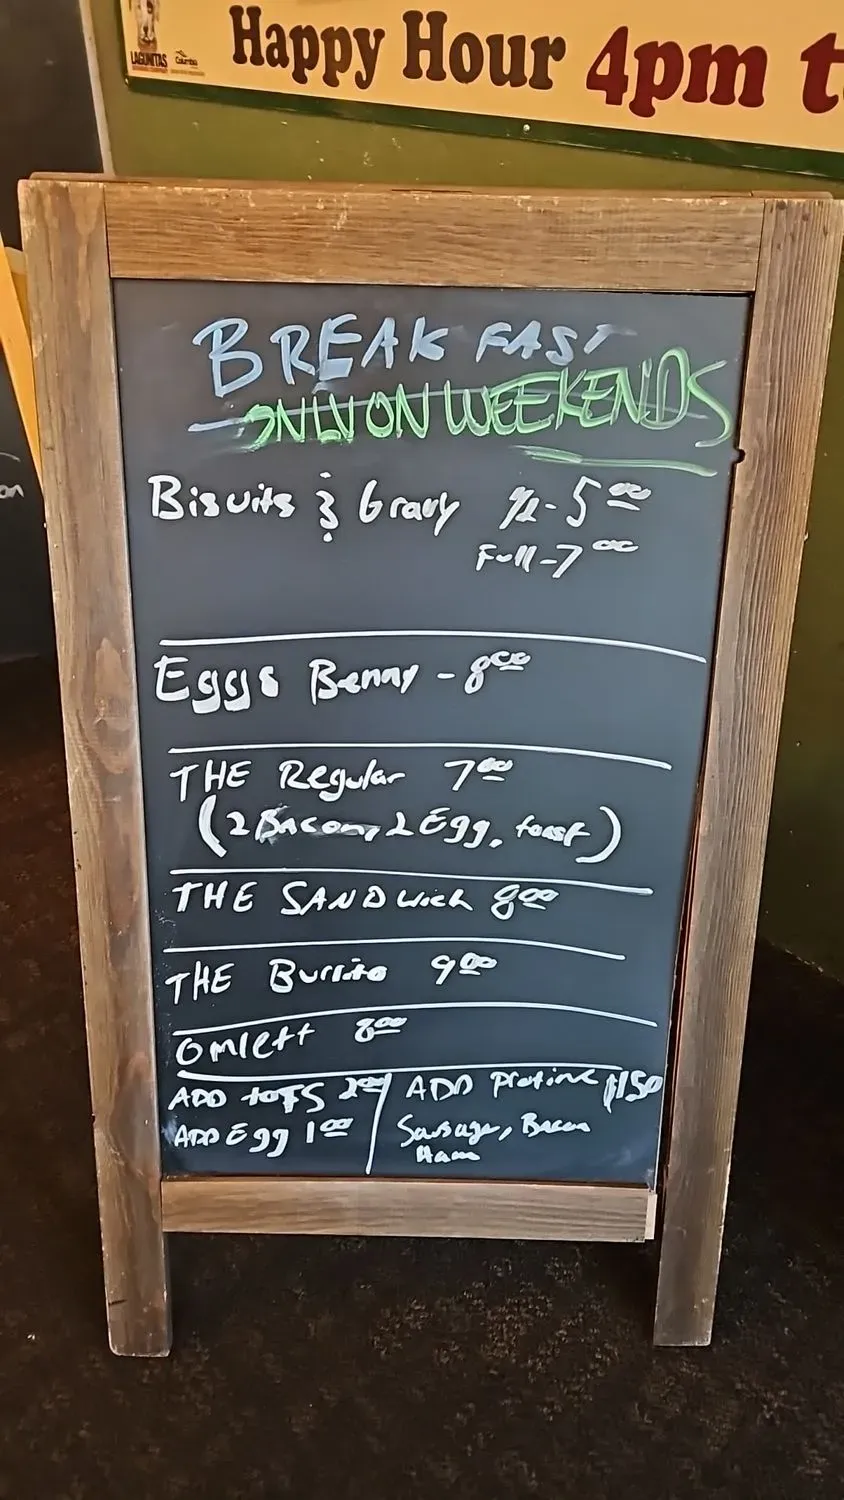 LAGUNITAS
Columbia
Happy Hour 4pm t
BREAKFAST
ONLY ON WEEKENDS
Biscuits & Gravy ½-5⁰⁰
Full-7⁰⁰
Eggs Benny - 8⁰⁰
THE Regular 7⁰⁰
(2 Bacon, 2 Egg, toast)
THE SANDwich 8⁰⁰
THE Burrito 9⁰⁰
Omlett 8⁰⁰
ADD toTS 2⁰⁰ / ADD Protine $1⁵⁰
ADD Egg 1⁰⁰ / Sausage, Bacon
Ham